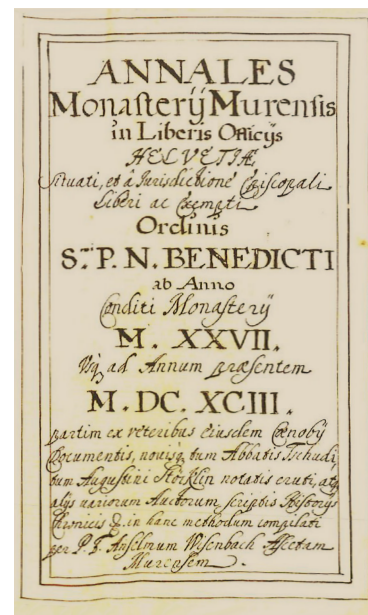 ANNALES
Monasterÿ Murensis
in Liberis Officÿs
HELVETIÆ,
Situati, et â Jurisdictione Episcopali
Liberi ac Exempti
Ordinis
S.ti P. N. BENEDICTI
ab Anno
Conditi Monasterÿ
M. XXVII.
Usq̃ ad Annum præsentem
M. DC. XCIII.
partim ex veteribus eiusdem Cœnobÿ
Documentis, novisq̃ tum Abbatis Tschudi,
tum Augustini Stöcklin notatis eruti, atq̃
alÿs variorum Auctorum scriptis Historÿs
Chronicis & in hanc methodum compilati
per P. F. Anselmum Wisenbach Ascetam
Murensem.